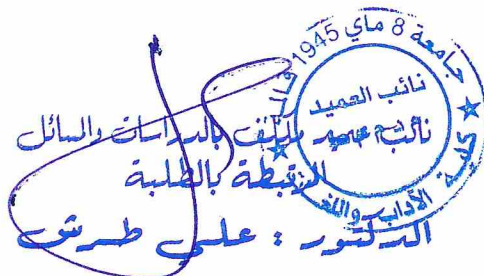 جامعة 8 ماي 1945
نائب العميد
كلية الآداب واللغـ
نائب عميد مكلف بالدراسات والمسائل
المرتبطة بالطلبة
الدكتور : علي طرش